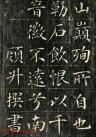 山巔殉所自也
勒石飲恨以千
音徽不遠兮南
顧升撰書